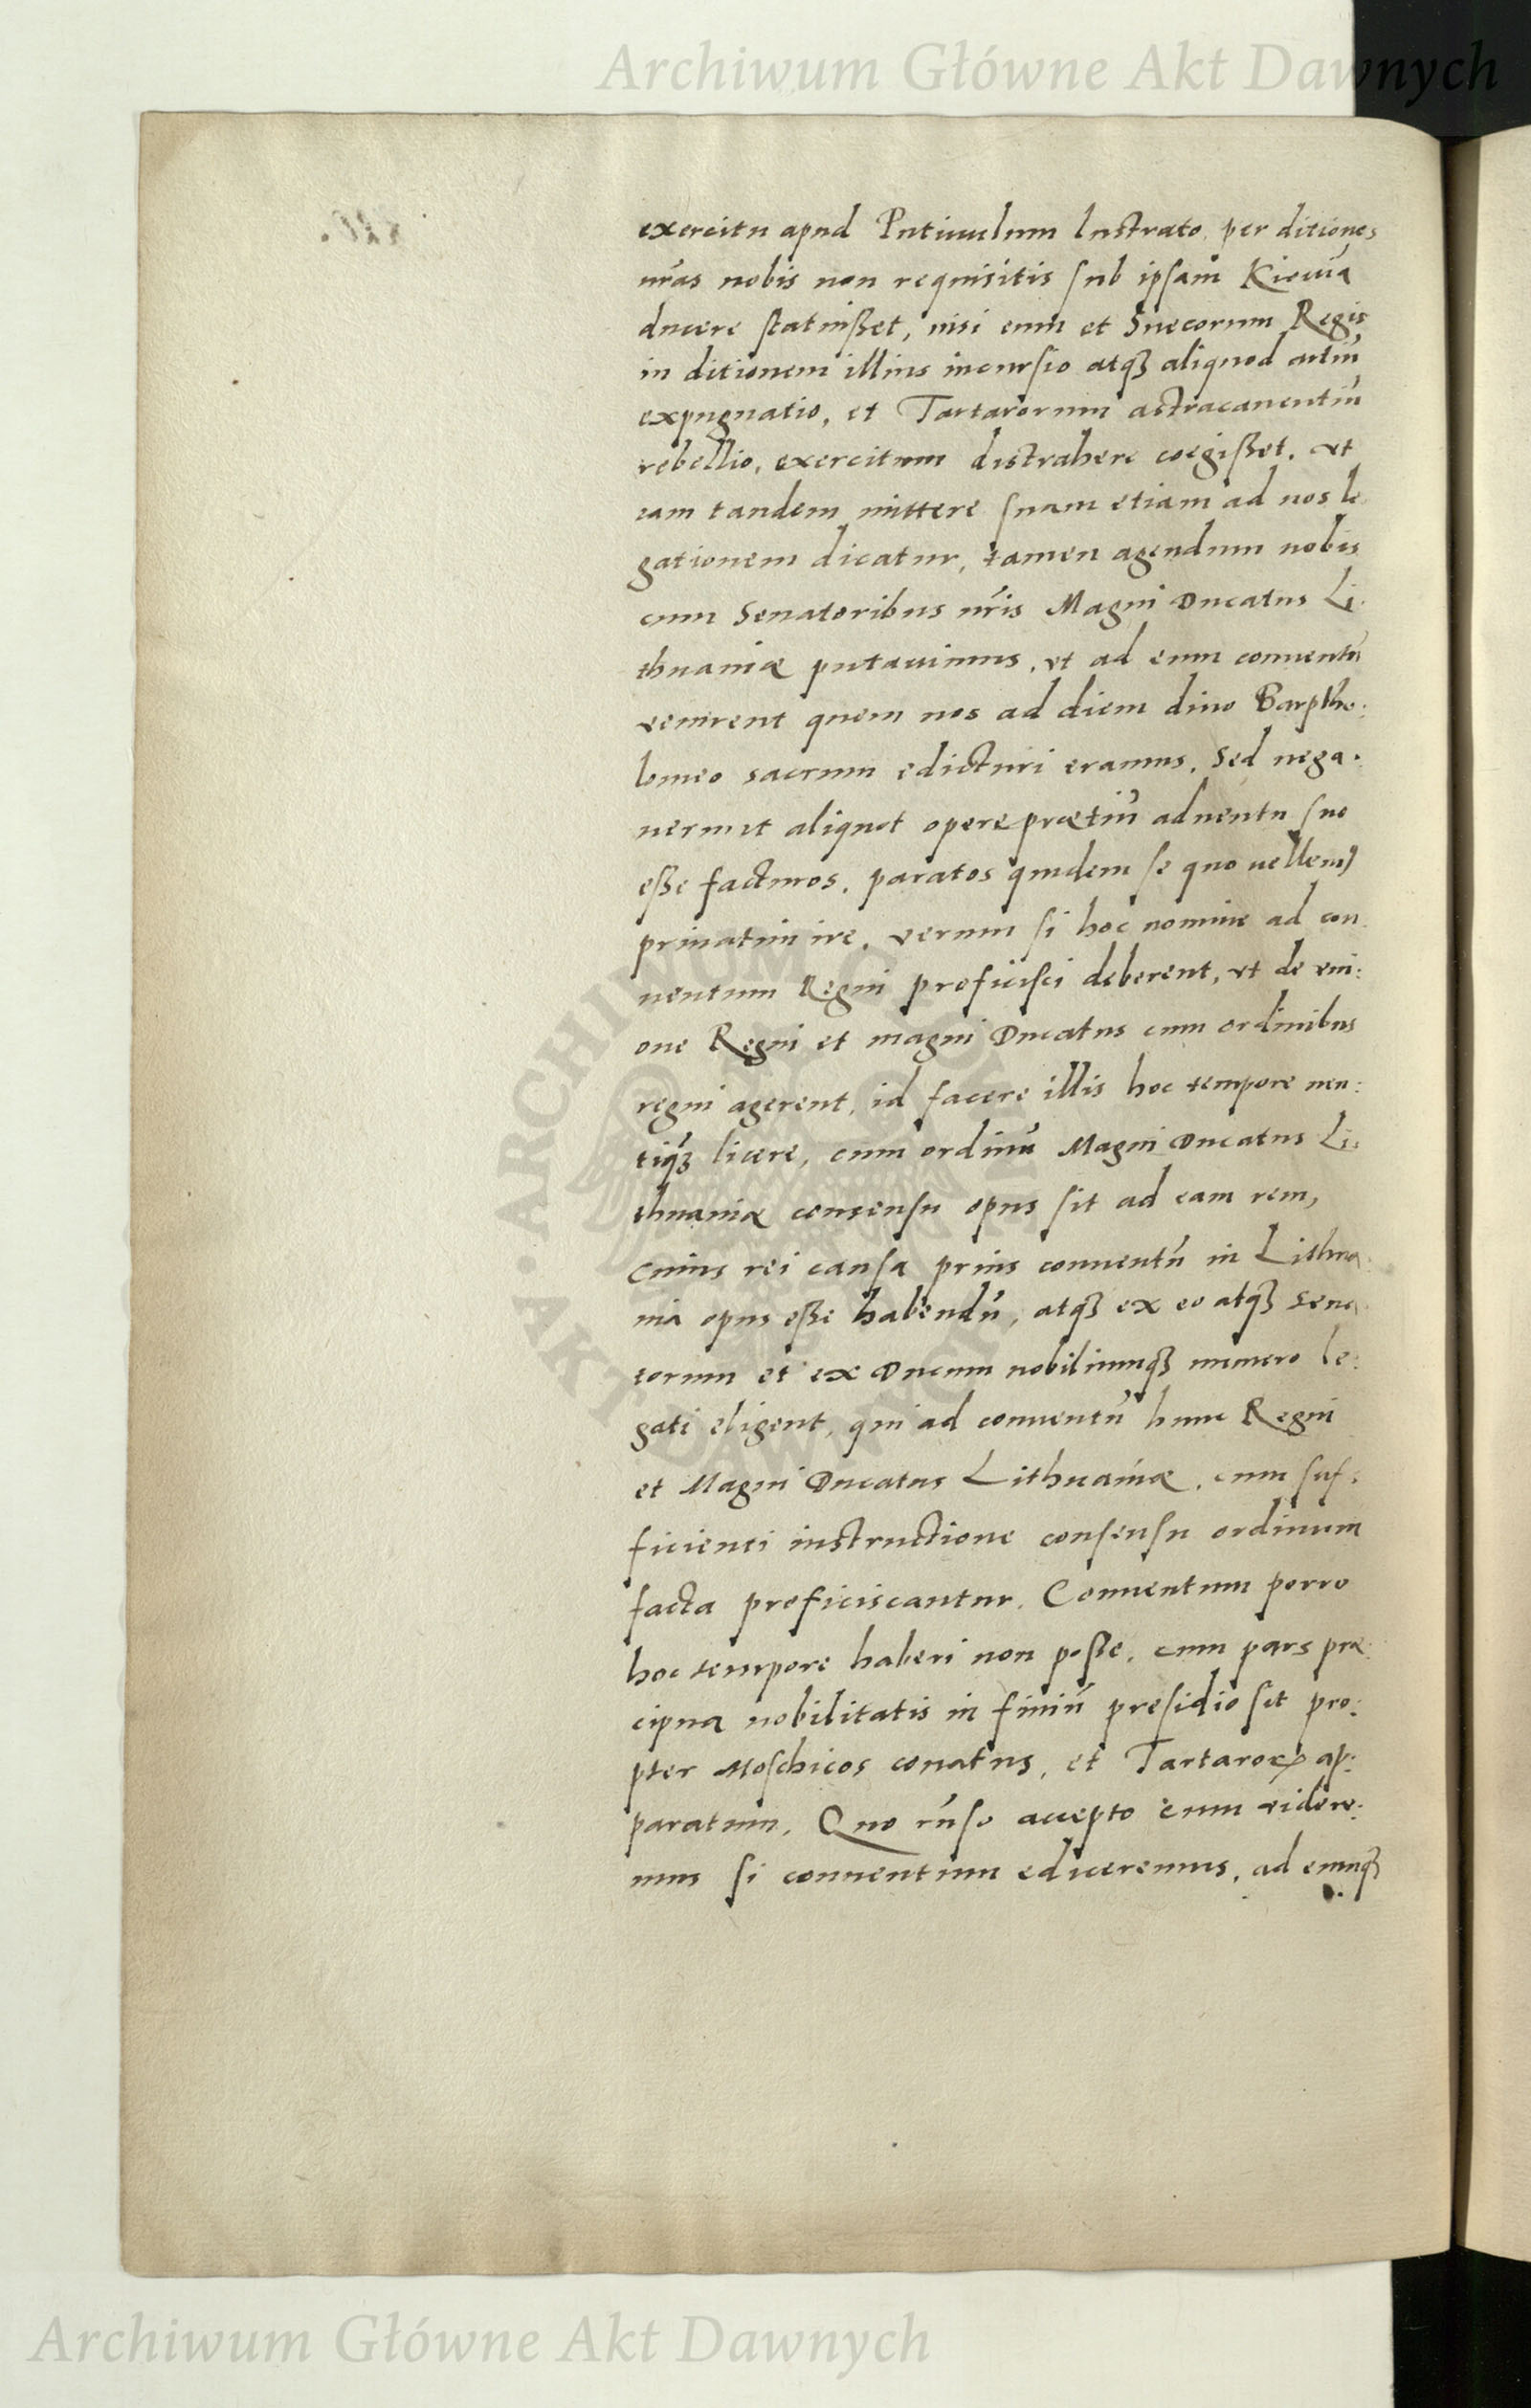 Archiwum Główne Akt Dawnych
exercitu apud Putiuulum lustrato, per ditiones
nr̃as nobis non requisitis sub ipsam Kiouiã
ducere statuißet, nisi eum et Suecorum Regis
in ditionem illius incursio atqꝫ aliquod artiũ
expugnatio, et Tartarorum astracanentiũ
rebellio, exercitum distrahere coegißet, vt
iam tandem mittere suam etiam ad nos le
gationem dicatur, tamen agendum nobis
cum Senatoribus nr̃is Magni Ducatus Li
thuaniæ putauimus, vt ad eum conuentũ
venirent quem nos ad diem diuo Barptho:
lomeo sacrum edicturi eramus. Sed nega.
uerunt aliquot operepraetiũ aduentu suo
eße facturos, paratos quidem se quo uellem9
priuatim ire, verum si hoc nomine ad con
uentum Regni proficisci deberent, vt de vni:
one Regni et magni Ducatus cum ordinibus
regni agerent, id facere illis hoc tempore neu:
tiqꝫ licere, cum ordinũ Magni Ducatus Li:
thuaniæ consensu opus sit ad eam rem,
cuius rei causa prius conuentũ in Lithua
nia opus eße habendũ, atqꝫ ex eo atqꝫ sena
torum et ex Ducum nobiliumqꝫ numero le:
gati eligent, qui ad conuentũ hunc Regni
et Magni Ducatus Lithuaniæ, cum suf:
ficienti instructione consensu ordinum
facta proficiscantur. Conuentum porro
hoc tempore haberi non poße, cum pars præ
cipua nobilitatis in finiũ presidio sit pro:
pter Moschicos conatus, et Tartaroꝝ ap:
paratum. Quo rũso accepto cum videre:
mus si conuentum ediceremus, ad eumqꝫ
ARCHIWUM GŁÓWNE AKT DAWNYCH
Archiwum Główne Akt Dawnych